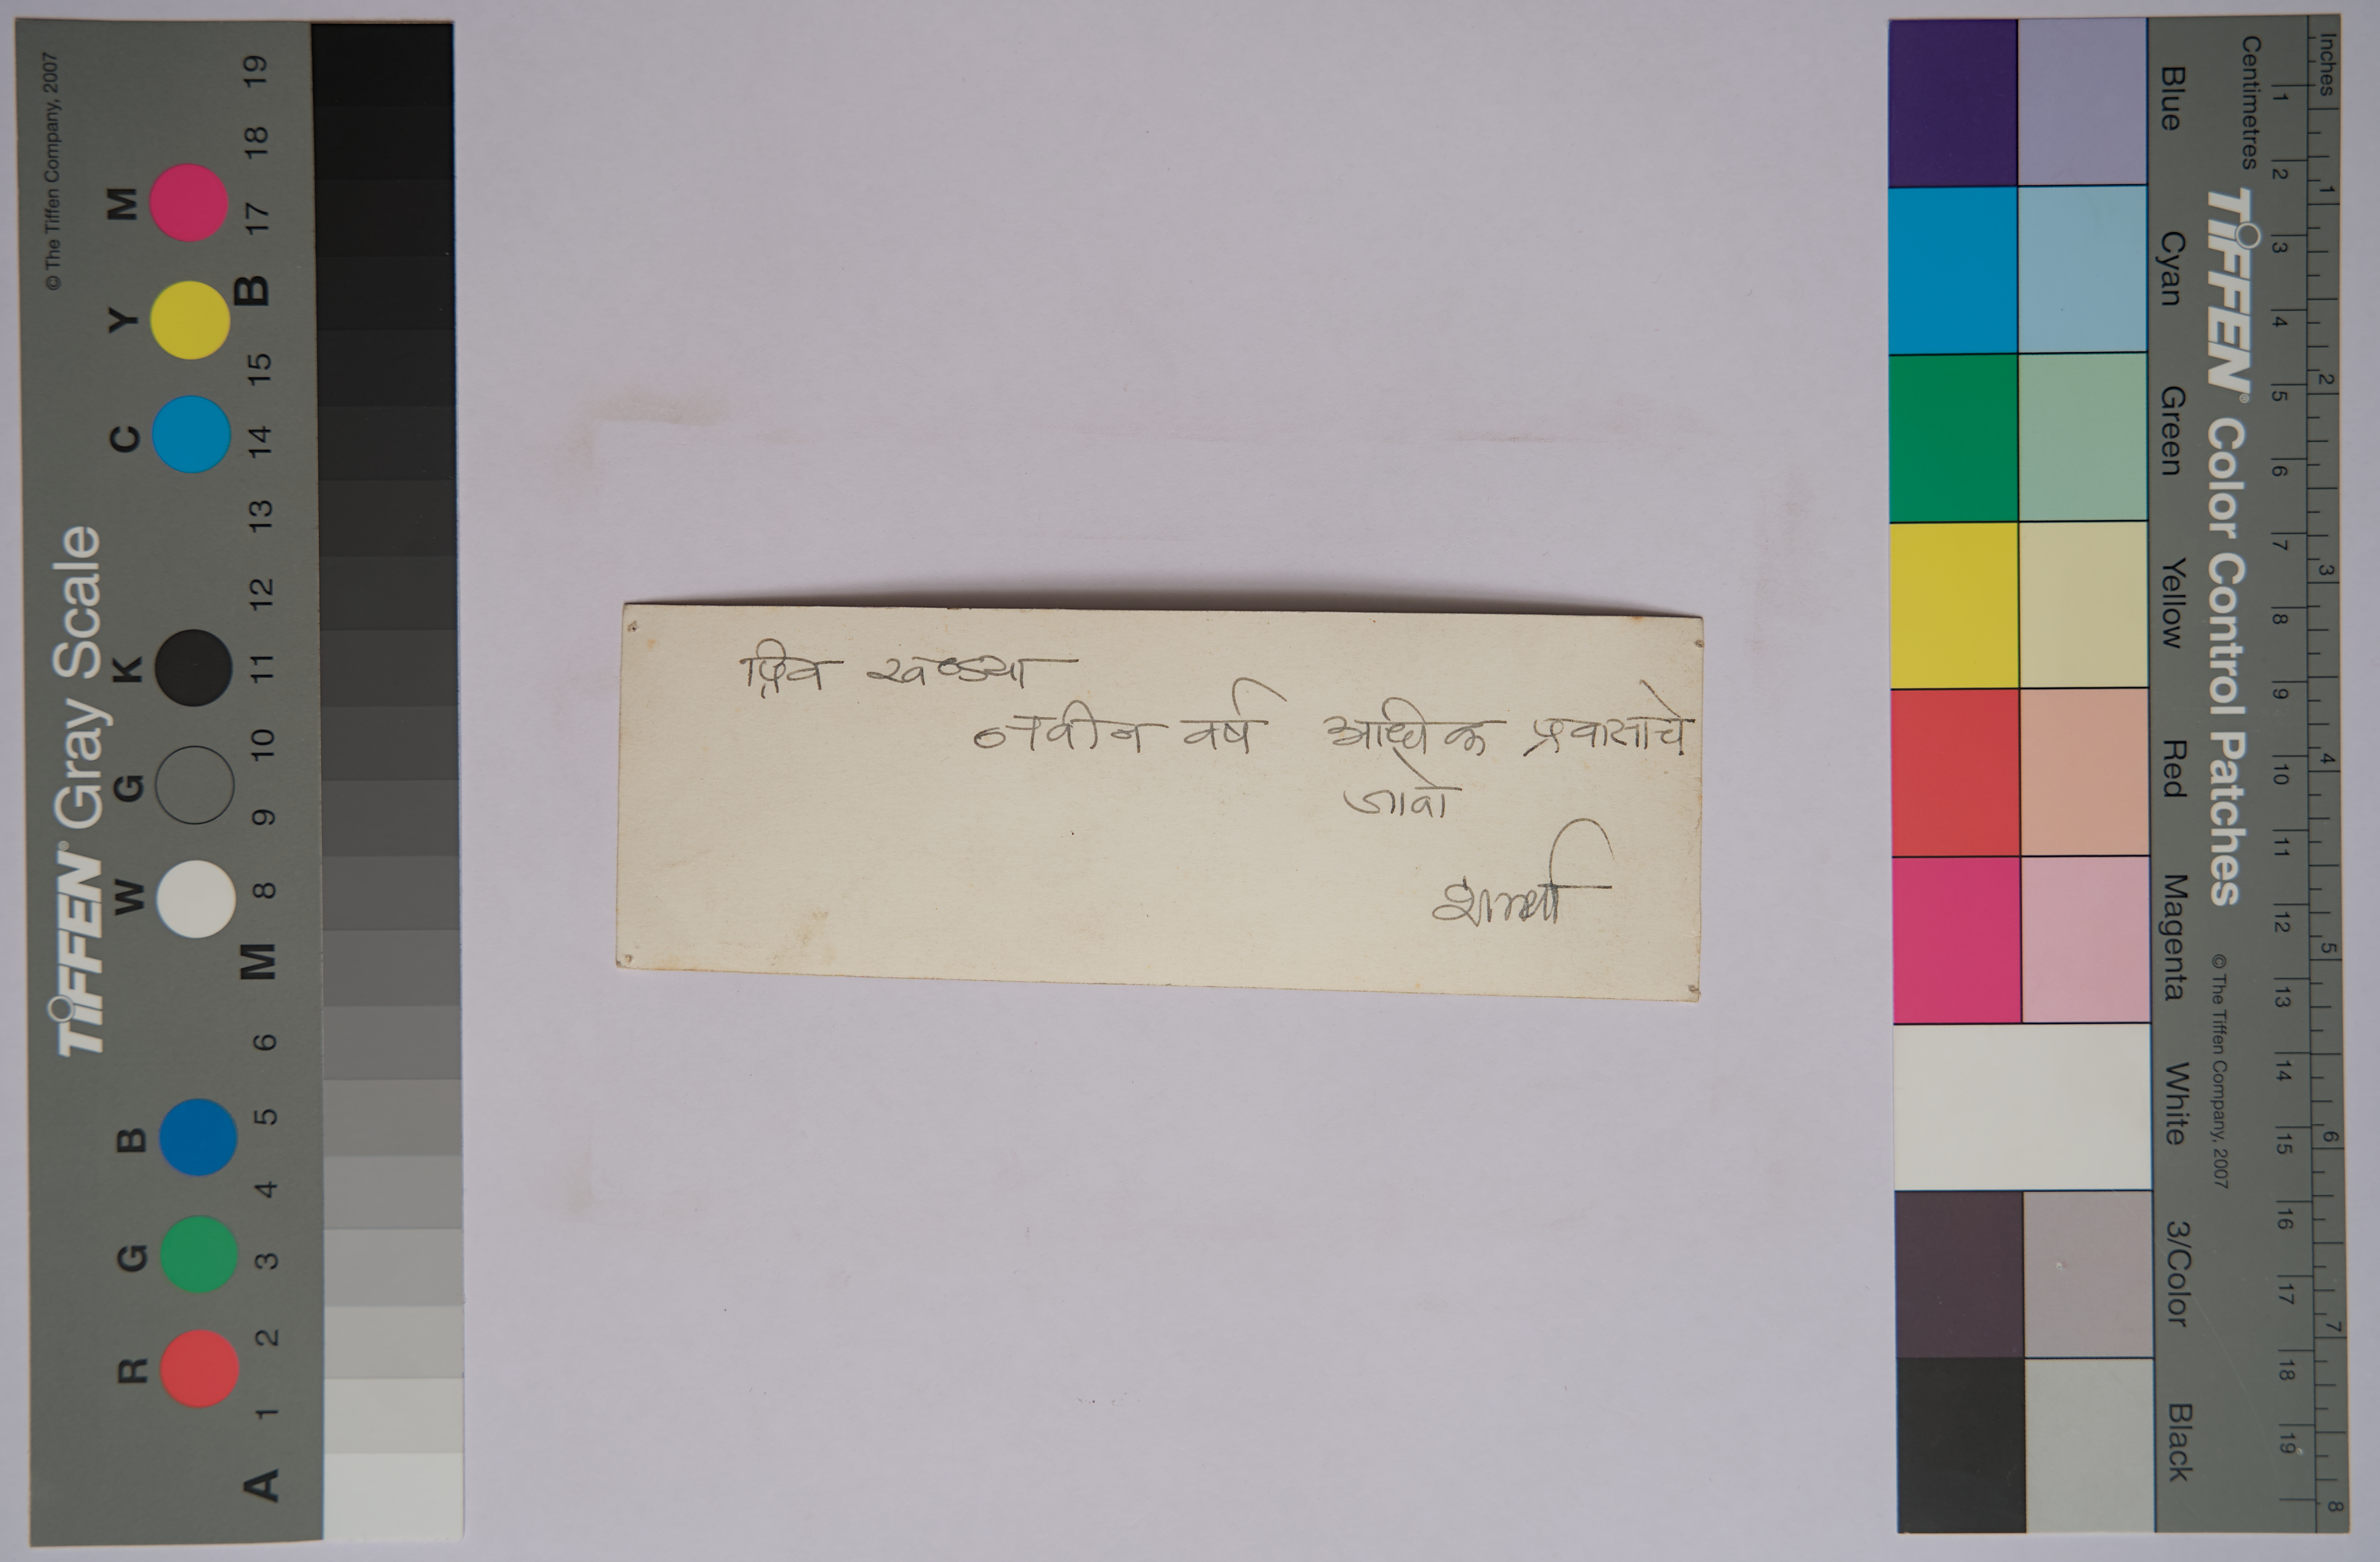 प्रिय खण्ड्या
नवीन वर्ष आधीक प्रवासाचे
जावो
शर्मा
© The Tiffen Company, 2007
TIFFEN® Gray Scale
R G B W G K C Y M
A 1 2 3 4 5 6 M 8 9 10 11 12 13 14 15 B 17 18 19
Inches 1 2 3 4 5 6 7 8
Centimetres 1 2 3 4 5 6 7 8 9 10 11 12 13 14 15 16 17 18 19
TIFFEN® Color Control Patches © The Tiffen Company, 2007
Blue Cyan Green Yellow Red Magenta White 3/Color Black